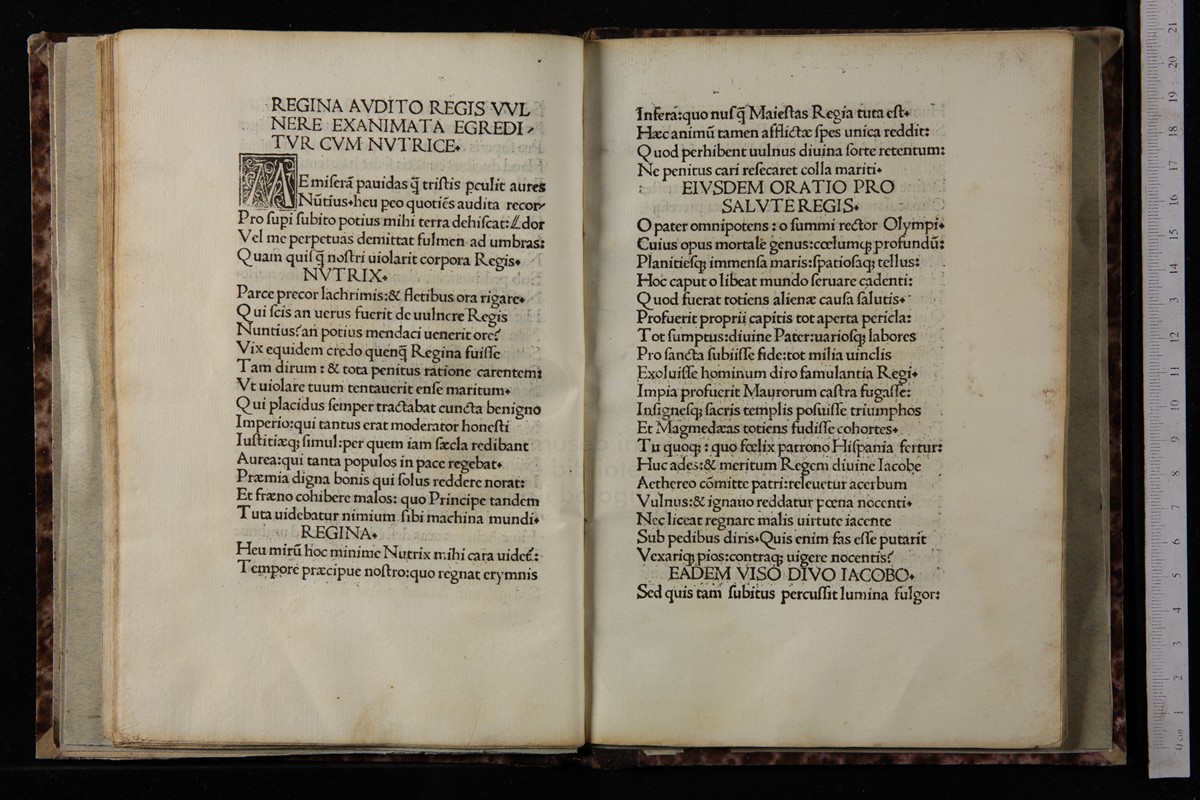 REGINA AVDITO REGIS VVL
NERE EXANIMATA EGREDI
TVR CVM NVTRICE.
AE miserā pauidas q̄ tristis pculit aures
Nūtius.heu peo quotiēs audita recor
Pro supi subito potius mihi terra dehiscat: dor
Vel me perpetuas demittat fulmen ad umbras:
Quam quisq̄ nostri uiolarit corpora Regis.
NVTRIX.
Parce precor lachrimis:& fletibus ora rigare.
Qui scis an uerus fuerit de uulnere Regis
Nuntius?an potius mendaci uenerit ore?
Vix equidem credo quenq̄ Regina fuisse
Tam dirum: & tota penitus ratione carentem:
Vt uiolare tuum tentauerit ense maritum.
Qui placidus semper tractabat cuncta benigno
Imperio:qui tantus erat moderator honesti
Iustitiæq; simul:per quem iam sæcla redibant
Aurea:qui tanta populos in pace regebat.
Præmia digna bonis qui solus reddere norat:
Et fræno cohibere malos: quo Principe tandem
Tuta uidebatur nimium sibi machina mundi.
REGINA.
Heu mirū hoc minime Nutrix mihi cara uidet̄:
Tempore præcipue nostro:quo regnat erymnis
Infera:quo nusq̄ Maiestas Regia tuta est.
Hæc animū tamen afflictæ spes unica reddit:
Quod perhibent uulnus diuina sorte retentum:
Ne penitus cari resecaret colla mariti.
EIVSDEM ORATIO PRO
SALVTE REGIS.
O pater omnipotens: o summi rector Olympi.
Cuius opus mortale genus:cœlumq; profundū:
Planitiesq; immensa maris:spatiosaq; tellus:
Hoc caput o libeat mundo seruare cadenti:
Quod fuerat totiens alienæ causa salutis.
Profuerit proprii capitis tot aperta pericla:
Tot sumptus:diuine Pater:uariosq; labores
Pro sancta subiisse fide:tot milia uinclis
Exoluisse hominum diro famulantia Regi.
Impia profuerit Maurorum castra fugasse:
Insignesq; sacris templis posuisse triumphos
Et Magmedæas totiens fudisse cohortes.
Tu quoq; : quo fœlix patrono Hispania fertur:
Huc ades:& meritum Regem diuine Iacobe
Aethereo cōmitte patri:releuetur acerbum
Vulnus:& ignauo reddatur pœna nocenti.
Nec liceat regnare malis uirtute iacente
Sub pedibus diris.Quis enim fas esse putarit
Vexariq; pios:contraq; uigere nocentis?
EADEM VISO DIVO IACOBO.
Sed quis tam subitus percussit lumina fulgor: